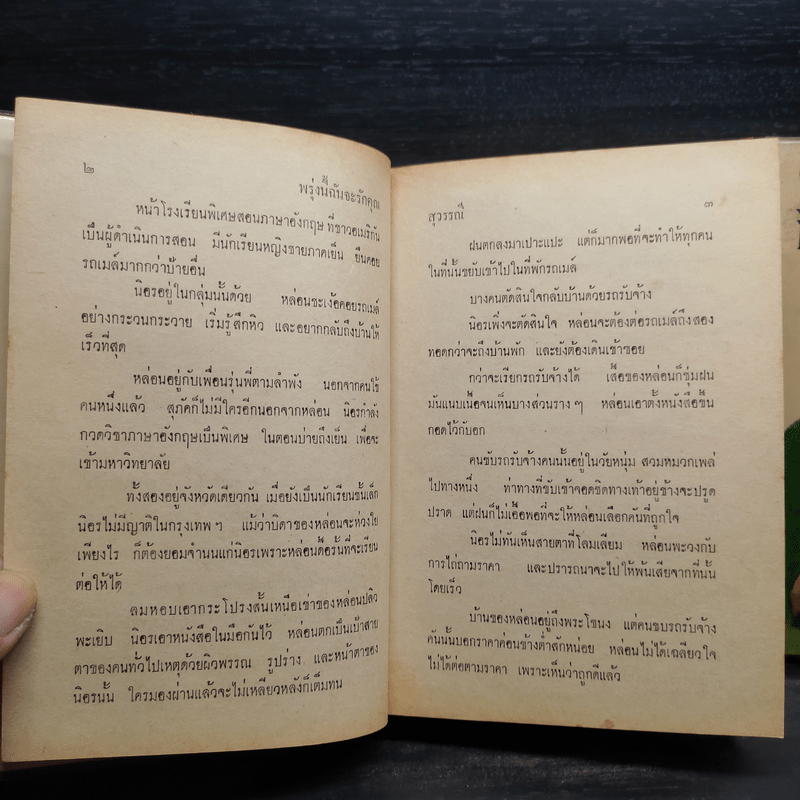 ๒
พรุ่งนี้ฉันจะรักคุณ
หน้าโรงเรียนพิเศษสอนภาษาอังกฤษ ที่ชาวอเมริกัน
เป็นผู้ดำเนินการสอน มีนักเรียนหญิงชายภาคเย็น ยืนคอย
รถเมล์มากกว่าป้ายอื่น
นิอรอยู่ในกลุ่มนั้นด้วย หล่อนชะเง้อคอยรถเมล์
อย่างกระวนกระวาย เริ่มรู้สึกหิว และอยากกลับถึงบ้านให้
เร็วที่สุด
หล่อนอยู่กับเพื่อนรุ่นพี่ตามลำพัง นอกจากคนใช้
คนหนึ่งแล้ว สุภัคก็ไม่มีใครอีกนอกจากหล่อน นิอรกำลัง
กวดวิชาภาษาอังกฤษเป็นพิเศษ ในตอนบ่ายถึงเย็น เพื่อจะ
เข้ามหาวิทยาลัย
ทั้งสองอยู่จังหวัดเดียวกัน เมื่อยังเป็นนักเรียนชั้นเล็ก
นิอรไม่มีญาติในกรุงเทพ ฯ แม้ว่าบิดาของหล่อนจะห่วงใย
เพียงไร ก็ต้องยอมจำนนแก่นิอรเพราะหล่อนดื้อรั้นที่จะเรียน
ต่อให้ได้
ลมหอบเอากระโปรงสั้นเหนือเข่าของหล่อนปลิว
พะเยิบ นิอรเอาหนังสือในมือกันไว้ หล่อนตกเป็นเป้าสาย
ตาของคนทั่วไปเหตุด้วยผิวพรรณ รูปร่าง และหน้าตาของ
นิอรนั้น ใครมองผ่านแล้วจะไม่เหลียวหลังก็เต็มทน
สุวรรณี
๓
ฝนตกลงมาเปาะแปะ แต่ก็มากพอที่จะทำให้ทุกคน
ในที่นั้นขยับเข้าไปในที่พักรถเมล์
บางคนตัดสินใจกลับบ้านด้วยรถรับจ้าง
นิอรเพิ่งจะตัดสินใจ หล่อนจะต้องต่อรถเมล์ถึงสอง
ทอดกว่าจะถึงบ้านพัก และยังต้องเดินเข้าซอย
กว่าจะเรียกรถรับจ้างได้ เสื้อของหล่อนก็ชุ่มฝน
มันแนบเนื้อจนเห็นบางส่วนราง ๆ หล่อนเอาตั้งหนังสือขึ้น
กอดไว้กับอก
คนขับรถรับจ้างคนนั้นอยู่ในวัยหนุ่ม สวมหมวกเพล่
ไปทางหนึ่ง ท่าทางที่ขับเข้าจอดชิดทางเท้าอยู่ข้างจะปรูด
ปราด แต่ฝนก็ไม่เอื้อพอที่จะให้หล่อนเลือกคันที่ถูกใจ
นิอรไม่ทันเห็นสายตาที่โลมเลียม หล่อนพะวงกับ
การไถ่ถามราคา และปรารถนาจะไปให้พ้นเสียจากที่นั้น
โดยเร็ว
บ้านของหล่อนอยู่ถึงพระโขนง แต่คนขับรถรับจ้าง
คันนั้นบอกราคาค่อนข้างต่ำสักหน่อย หล่อนไม่ได้เฉลียวใจ
ไม่ได้ต่อตามราคา เพราะเห็นว่าถูกดีแล้ว